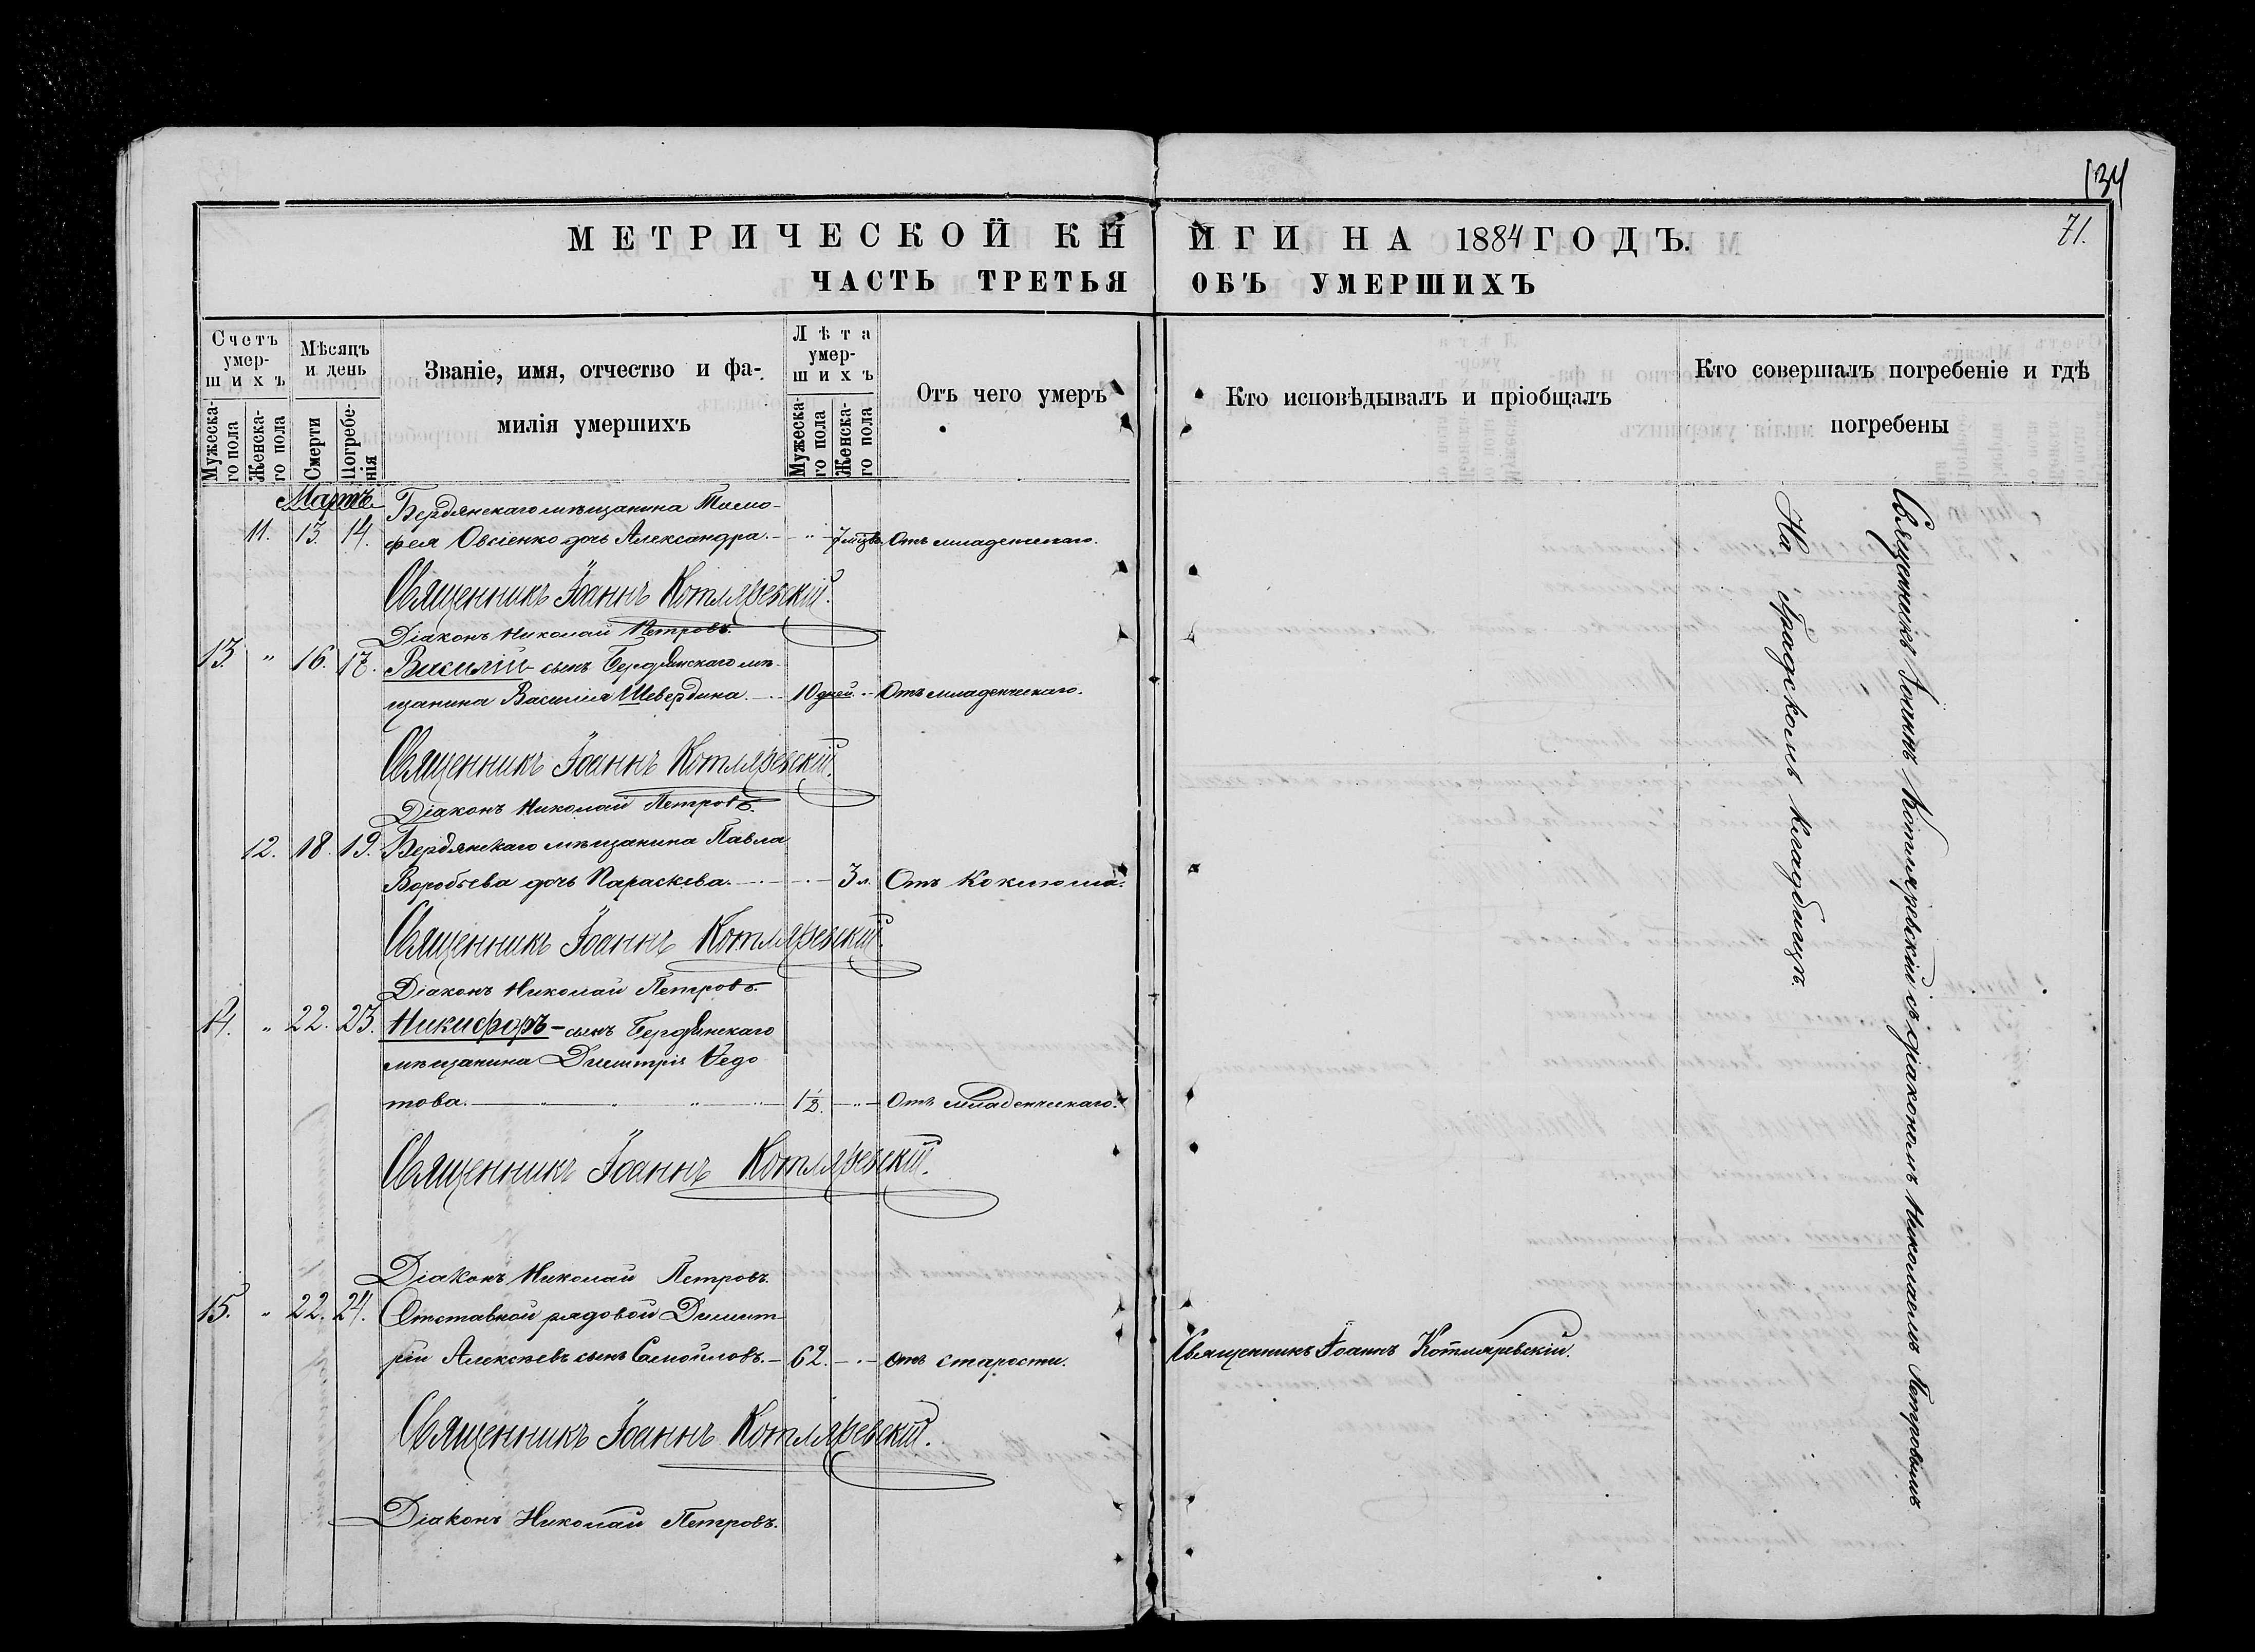 134
МЕТРИЧЕСКОЙ КНИГИ НА 1884 ГОДЪ.
71.
ЧАСТЬ ТРЕТЬЯ ОБЪ УМЕРШИХЪ
Счетъ умер-шихъ
Мужеска-го пола
Женска-го пола
Мѣсяцъ и день
Смерти
Погребе-нія
Званіе, имя, отчество и фа-
милія умершихъ
Лѣта умер-шихъ
Мужеска-го пола
Женска-го пола
Отъ чего умеръ
Кто исповѣдывалъ и пріобщалъ
Кто совершалъ погребеніе и гдѣ
погребены
Мартъ
Бердянскаго мѣщанина Тимо-
11. 13. 14. фея Овсіенко дочь Александра. 7 мѣсц. Отъ младенческаго.
Священникъ Іоаннъ Котляревскій.
Діаконъ Николай Петровъ.
13. " 16. 17. Василій сынъ Бердянскаго мѣ-
щанина Василія Шевердина. 10 дней. Отъ младенческаго.
Священникъ Іоаннъ Котляревскій.
Діаконъ Николай Петровъ.
12. 18. 19. Бердянскаго мѣщанина Павла
Воробьева дочь Параскева. 3 л. Отъ коклюша.
Священникъ Іоаннъ Котляревскій.
Діаконъ Николай Петровъ.
14. " 22. 23. Никифоръ - сынъ Бердянскаго
мѣщанина Димитрія Ѳедо
това. 1/2. Отъ младенческаго.
Священникъ Іоаннъ Котляревскій.
Діаконъ Николай Петровъ.
15. " 22. 24. Отставной рядовой Димит
рій Алексѣевъ сынъ Самойловъ. 62. отъ старости. Священникъ Іоаннъ Котляревскій.
Священникъ Іоаннъ Котляревскій.
Діаконъ Николай Петровъ.
Священникъ Іоаннъ Котляревскій съ діакономъ Николаемъ Петровымъ
На Градскомъ кладбищѣ.